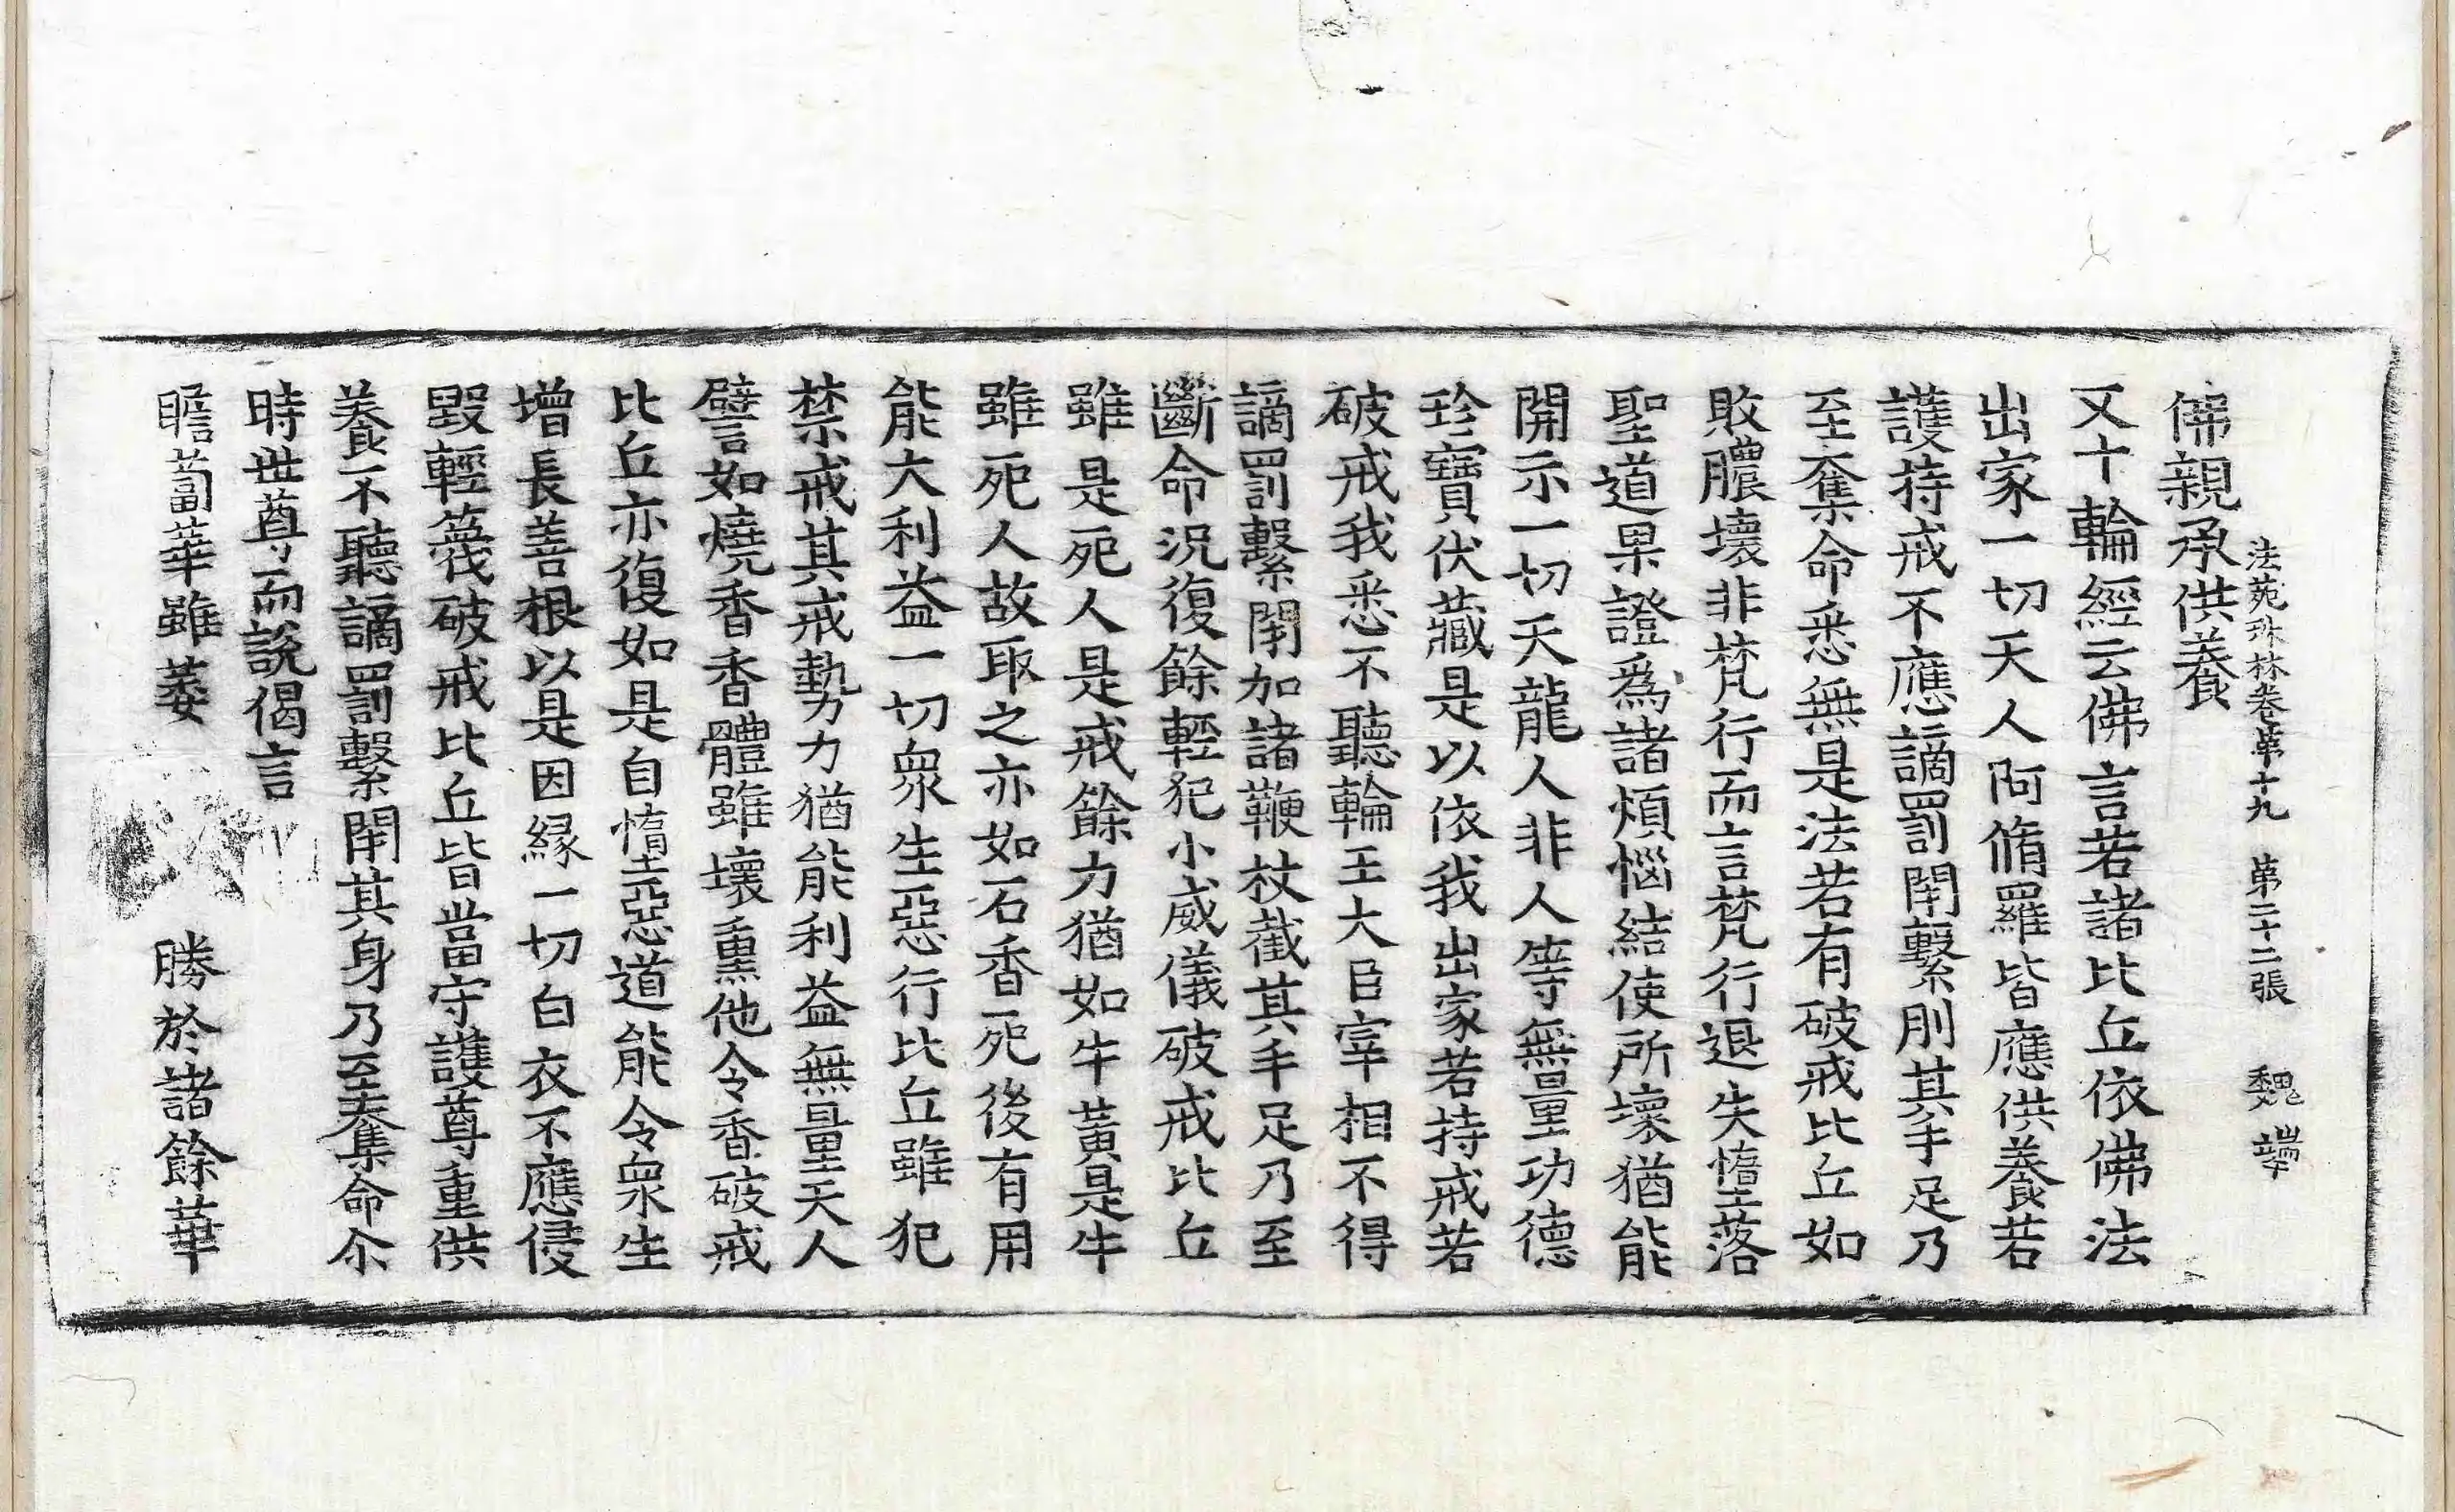 法苑珠林卷第十九 第二十二張 魏端
佛親承供養
又十輪經云佛言若諸比丘依佛法
出家一切天人阿脩羅皆應供養若
護持戒不應讁罰閇繫刖其手足乃
至奪命悉無是法若有破戒比丘如
敗膿壞非梵行而言梵行退失墯落
聖道果證爲諸煩惱結使所壞猶能
開示一切天龍人非人等無量功德
珎寶伏藏是以依我出家若持戒若
破戒我悉不聽輪王大臣宰相不得
讁罰繫閇加諸鞭杖截其手足乃至
斷命況復餘輕犯小威儀破戒比丘
雖是死人是戒餘力猶如牛黃是牛
雖死人故取之亦如石香死後有用
能大利益一切衆生惡行比丘雖犯
禁戒其戒勢力猶能利益無量天人
譬如燒香香體雖壞熏他令香破戒
比丘亦復如是自墯惡道能令衆生
增長善根以是因緣一切白衣不應侵
毀輕蔑破戒比丘皆當守護尊重供
養不聽讁罰繫閇其身乃至奪命尒
時世尊而說偈言
瞻蔔華雖萎 勝於諸餘華